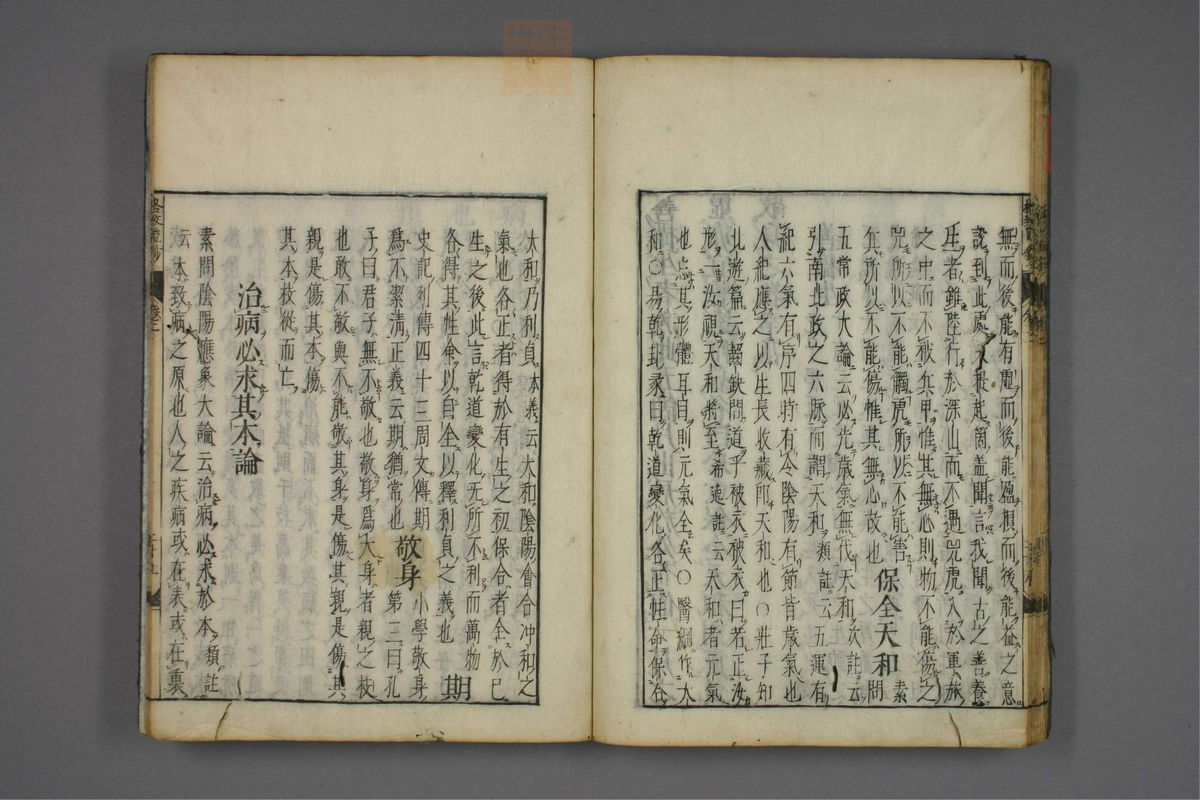 無而後能有虛而後能盈損而後能益之意
說到此處不提起箇蓋聞言我聞古之善養
生者雖陸行於深山而不遇兕虎入於軍旅
之中而不被兵甲惟其無心則物不能傷之
兕所以不能觸虎所以不能害
在所以不能傷惟其無心故也 保全天和 素問
五常政大論云必先歲氣無伐天和次註云
引南北政之六脉而謂天和類註云五運有
紀六氣有序四時有令陰陽有節皆歲氣也
人紀應之以生長收藏即天和也〇莊子知
北遊篇云齧缺問道乎被衣被衣曰若正汝
形一汝視天和將至希逸註云天和者元氣
也忘其形體耳目則元氣全矣〇醫綱作大
和〇易乾卦彖曰乾道變化各正性命保合
大和乃利貞本義云大和陰陽會合冲和之
氣也各正者得於有生之初保合者全於已
生之後此言乾道變化无所不利而萬物
各得其性命以自全以釋利貞之義也 期
史記列傳四十三周文傳期
爲不潔淸正義云期猶常也 敬身 小學敬身
第三曰孔
子曰君子無不敬也敬身爲大身者親之枝
也敢不敬與不能敬其身是傷其親是傷其
親是傷其本傷
其本枝從而亡
治病必求其本論
素問陰陽應象大論云治病必求於本類註
云本致病之原也人之疾病或在表或在裏